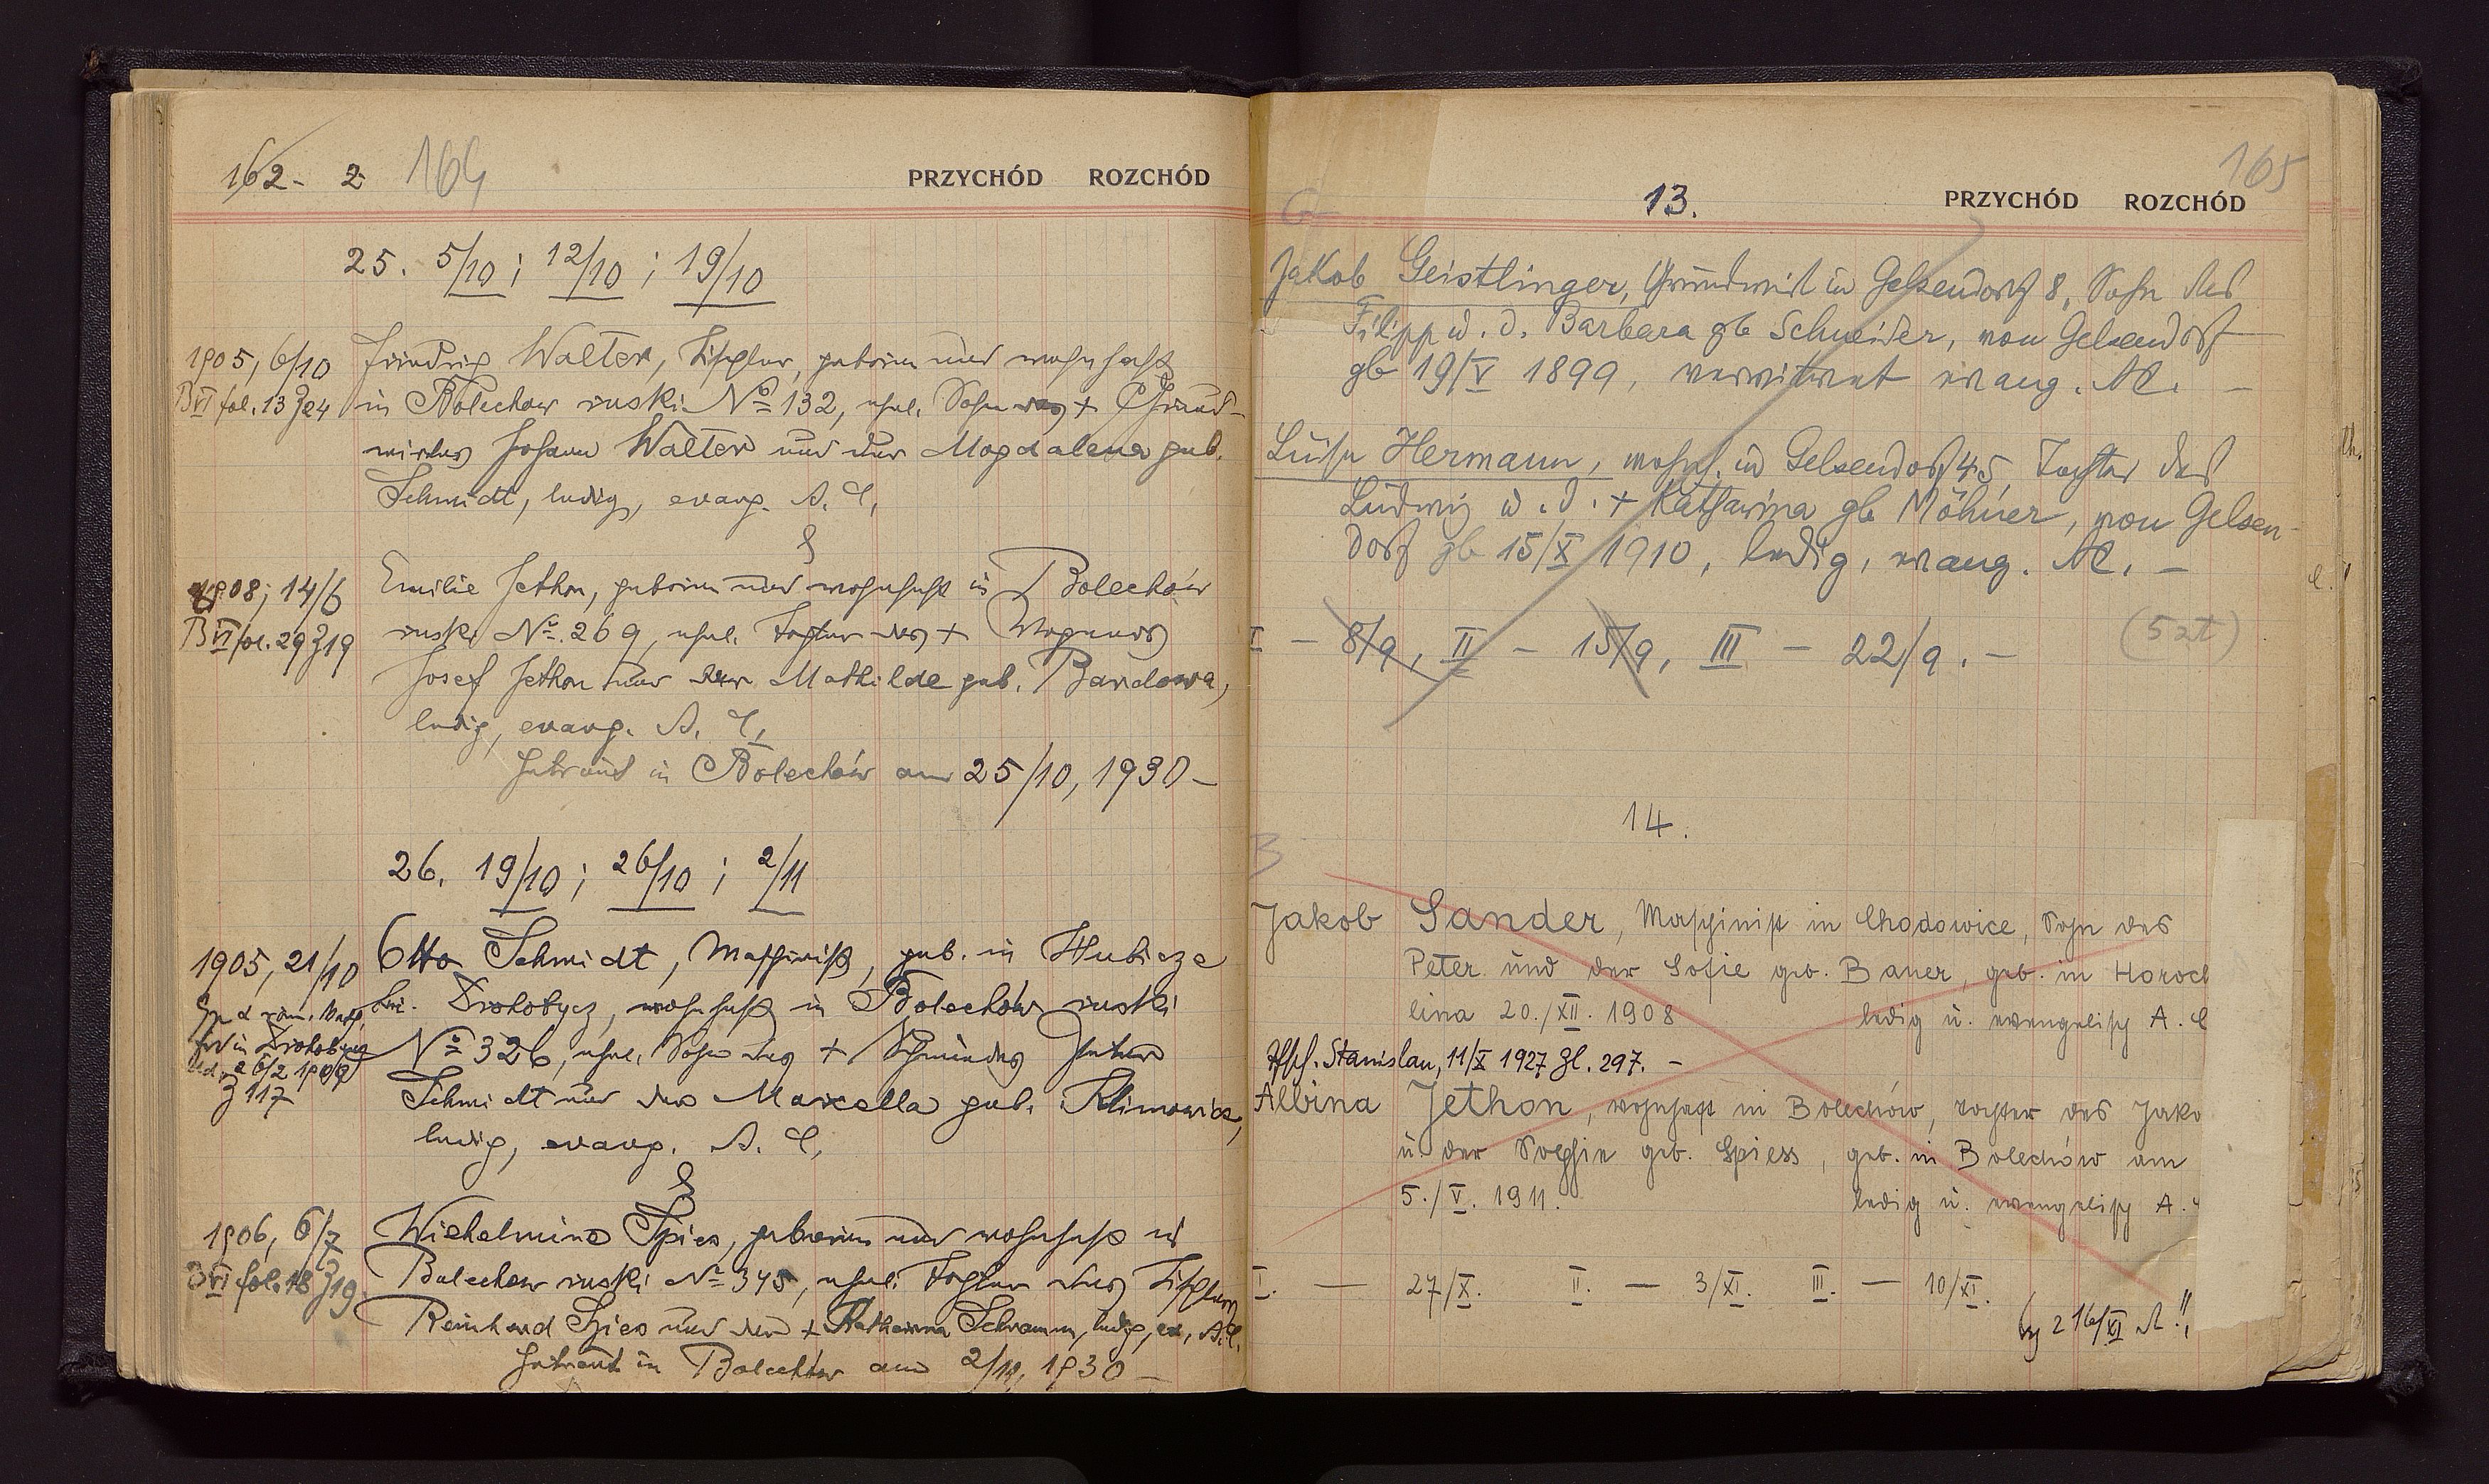 162 - 2 164
PRZYCHÓD ROZCHÓD
25. 5/10 ; 12/10 ; 19/10
1905, 6/10
B VI fol. 13 Z 24
Friedrich Walter, Tischler, geboren und wohnhaft
in Bolechow ruski No 132, ehel. Sohn des + Grund-
wirtes Johann Walter und der Magdalena geb.
Schmidt, ledig, evang. A. C.
&
1908, 14/6
B VI fol. 29 Z 19
Emilie Jethon, geboren und wohnhaft in Bolechów
ruski No. 269, ehel. Tochter des + Wagners
Josef Jethon und der Mathilde geb. Bandowa,
ledig, evang. A. C.
Getraut in Bolechów am 25/10, 1930 -
26. 19/10 ; 26/10 ; 2/11
1905, 21/10
in Drohobycz
Z 117
Otto Schmidt, Maschinist, geb. in Hubicze
bei Drohobycz, wohnhaft in Bolechów ruski
No 326, ehel. Sohn des + Schmiedes
Schmidt und der Marcella geb. Klimowicz,
ledig, evang. A. C.
&
1906, 6/7
B VI fol. 18 Z 19
Wilhelmine Spies, geboren und wohnhaft in
Bolechow ruski No 345, ehel. Tochter des Tischlers
Reinhard Spies und der + Katharina Schramm, ledig, ev. A. C.
Getraut in Bolechów am 2/11, 1930 -
165
13. PRZYCHÓD ROZCHÓD
G
Jakob Geistlinger, Grundwirt in Gelsendorf 8, Sohn des
Filipp u. d. Barbara gb Schneider, von Gelsendorf
gb 19/V 1899, verwitwet evang. AC. -
Luise Hermann, wohnh. in Gelsendorf 45, Tochter des
Ludwig u. d. + Katharina gb Möhner, von Gelsen-
dorf gb 15/X 1910, ledig, evang. AC. -
I - 8/9, II - 15/9, III - 22/9. - (5 zł)
14.
B
Jakob Sander, Maschinist in Chodowice, Sohn des
Peter und der Sofie geb. Bauer, geb. in Horoch
lina 20./XII. 1908 ledig u. evangelisch A. C
Stanislau, 11/X 1927 Zl. 297. -
Albina Jethon, wohnhaft in Bolechów, Tochter des Jako
u. der Sophie geb. Spiess, geb. in Bolechów am
5./V. 1911. ledig u. evangelisch A.
I. — 27/X. II. — 3/XI. III. — 10/XI.
16/XI